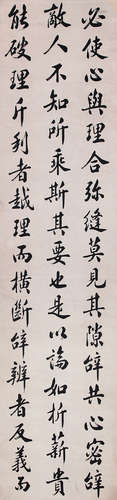 必使心與理合弥縫莫見其隙辭共心密辭
敵人不知所乘斯其要也是以論如析薪貴
能破理斤利者越理而橫斷辭辨者反義而